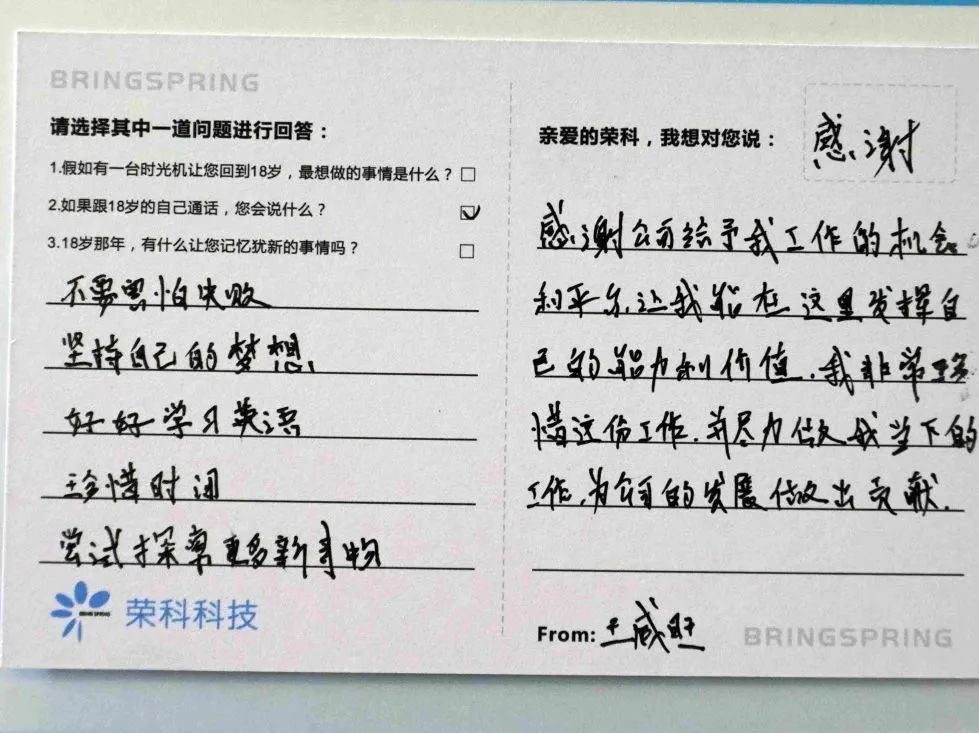 BRINGSPRING
请选择其中一道问题进行回答：
1.假如有一台时光机让您回到18岁，最想做的事情是什么？
2.如果跟18岁的自己通话，您会说什么？
3.18岁那年，有什么让您记忆犹新的事情吗？
不需要怕失败
坚持自己的梦想
好好学习英语
珍惜时间
尝试探索更多新事物
荣科科技
亲爱的荣科，我想对您说：
感谢
感谢公司给予我工作的机会
和平台,让我能在这里发挥自
己的能力和价值.我非常珍
惜这份工作.并尽力做好当下的
工作,为公司的发展做出贡献.
From: 王威
BRINGSPRING